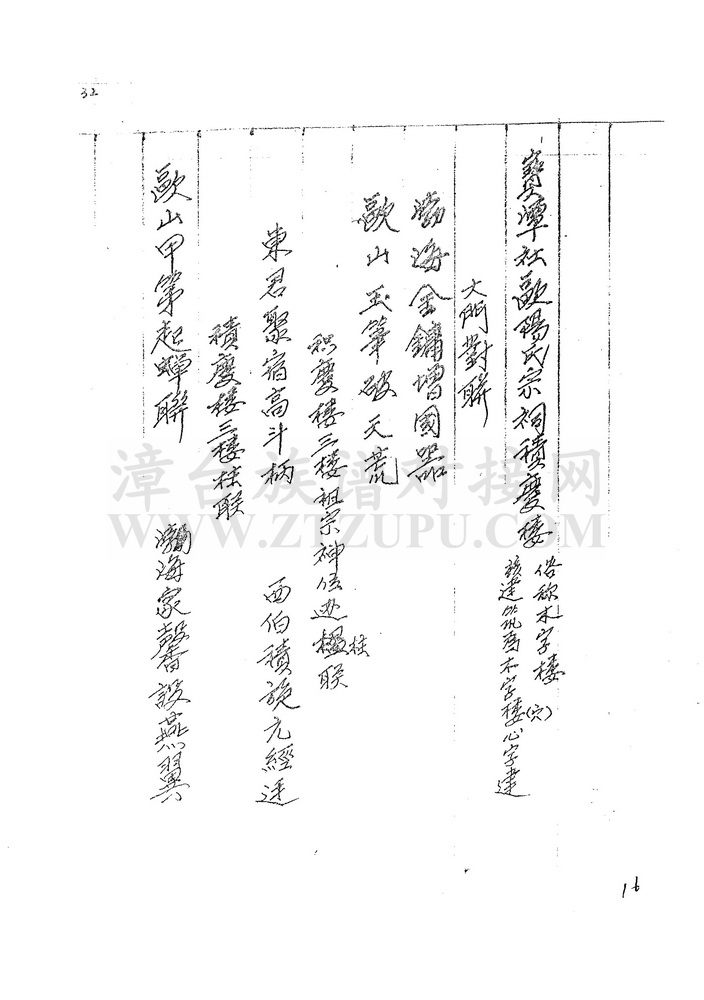 32
寶潭社歐陽氏宗祠積慶樓
俗称木字樓
該建筑為木字樓(穴)心字建
大門對聯
渤海金鏞增國器
歐山玉筆破天荒
积慶樓三樓祖宗神位边楹联
柱
東君聚宿高斗柄
西伯積旋元經廷
積慶樓三樓柱联
歐山甲第起蟬聯
渤海家馨設燕翼
漳台族谱对接网
WWW.ZTZUPU.COM
16